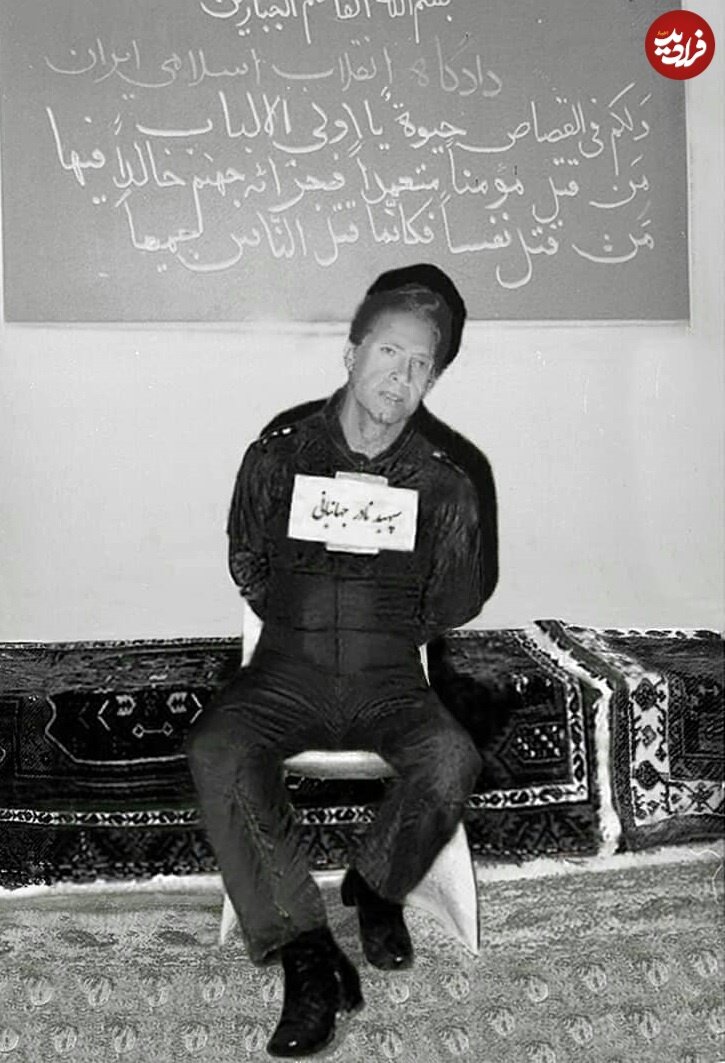 بسم الله القاصم الجبارین
دادگاه انقلاب اسلامی ایران
وَلکم فی القصاص حیوة یا اولی الالباب
مَن قتل مؤمناً متعمداً فجزائه جهنم خالداً فیها
مَن قتل نفساً فکانّما قتل النّاس جمیعاً
سپهبد نادر جهانبانی
فرادید